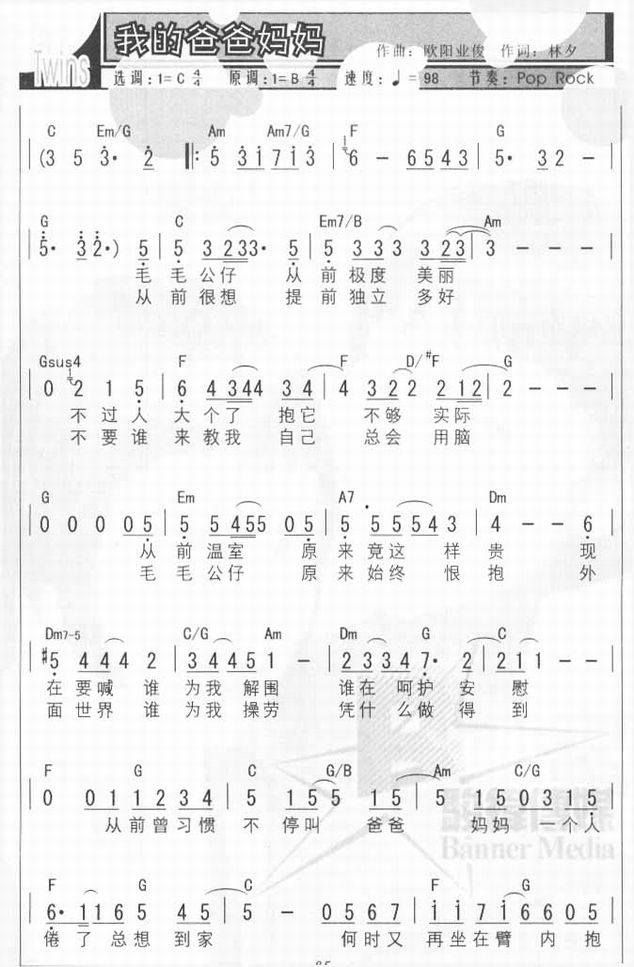 Twins
我的爸爸妈妈
作曲：欧阳业俊 作词：林夕
选调：1=C 4/4 原调：1=B 4/4 速度：♩=98 节奏：Pop Rock
C Em/G Am Am7/G F G
(3 5 3· 2 ‖: 5 3 1 7 1 3 | 6 – 6 5 4 3 | 5· 3 2 – |
G C Em7/B Am
5· 3 2·) 5 | 5 3 2 3 3· 5 | 5 3 3 3 3 2 3 | 3 – – – |
毛 毛 公 仔 从 前 极 度 美 丽
从 前 很 想 提 前 独 立 多 好
Gsus4 F F D/#F G
0 2 1 5 | 6 4 3 4 4 3 4 | 4 3 2 2 2 1 2 | 2 – – – |
不 过 人 大 个 了 抱 它 不 够 实 际
不 要 谁 来 教 我 自 己 总 会 用 脑
G Em A7 Dm
0 0 0 0 5 | 5 5 4 5 5 0 5 | 5 5 5 5 4 3 | 4 – – 6 |
从 前 温 室 原 来 竟 这 样 贵 现
毛 毛 公 仔 原 来 始 终 恨 抱 外
Dm7-5 C/G Am Dm G C
#5 4 4 4 4 2 | 3 4 4 4 5 1 – | 2 3 3 3 4 7· 2 | 2 1 1 – – |
在 要 喊 谁 为 我 解 围 谁 在 呵 护 安 慰
面 世 界 谁 为 我 操 劳 凭 什 么 做 得 到
F G C G/B Am C/G
0 0 1 1 2 3 4 | 5 1 5 5 1 5 | 5 1 5 5 0 3 1 5 |
从 前 曾 习 惯 不 停 叫 爸 爸 妈 妈 一 个 人
Banner Media
F G C F G
6· 1 1 6 5 4 5 | 5 – 0 5 6 7 | 1 1 7 1 6 6 0 5 |
倦 了 总 想 到 家 何 时 又 再 坐 在 臂 内 抱